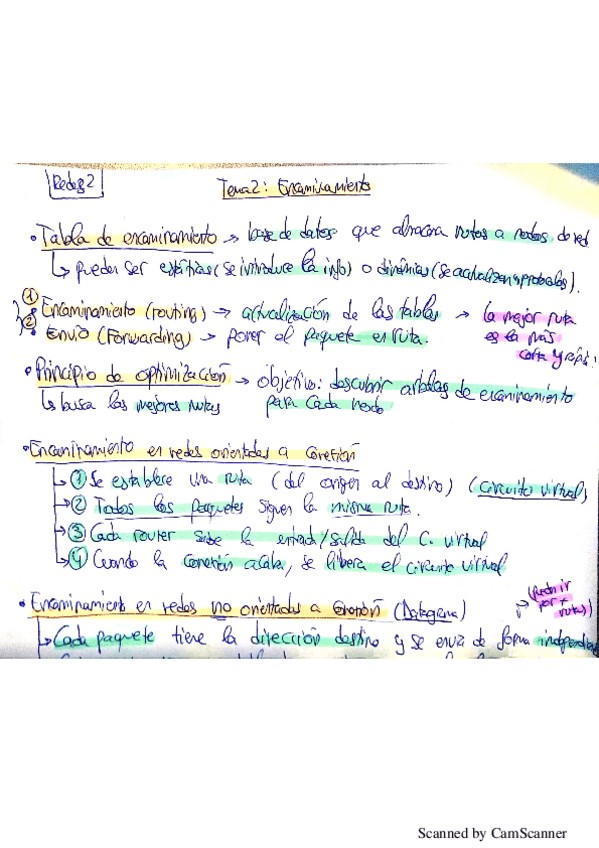 Redes 2
Tema 2: Encaminamiento
• Tabla de encaminamiento → base de datos que almacena rutas a nodos de red
↳ pueden ser estáticas (se introduce la info) o dinámicas (se actualizan protocolos).
① Encaminamiento (routing) → actualización de las tablas → la mejor ruta
② Envío (Forwarding) → poner el paquete en ruta. es la más
corta y rápi
• Principio de optimización → objetivo: descubrir árboles de encaminamiento
↳ busca las mejores rutas para cada nodo
• Encaminamiento en redes orientadas a conexión
↳ ① Se establece una ruta (del origen al destino) (circuito virtual)
↳ ② Todos los paquetes siguen la misma ruta.
↳ ③ Cada router sabe la entrada/salida del C. virtual
↳ ④ Cuando la conexión acaba, se libera el circuito virtual
• Encaminamiento en redes no orientadas a conexión (Datagrama)
por + rutas)
↳ Cada paquete tiene la dirección destino y se envía de forma independient
Scanned by CamScanner